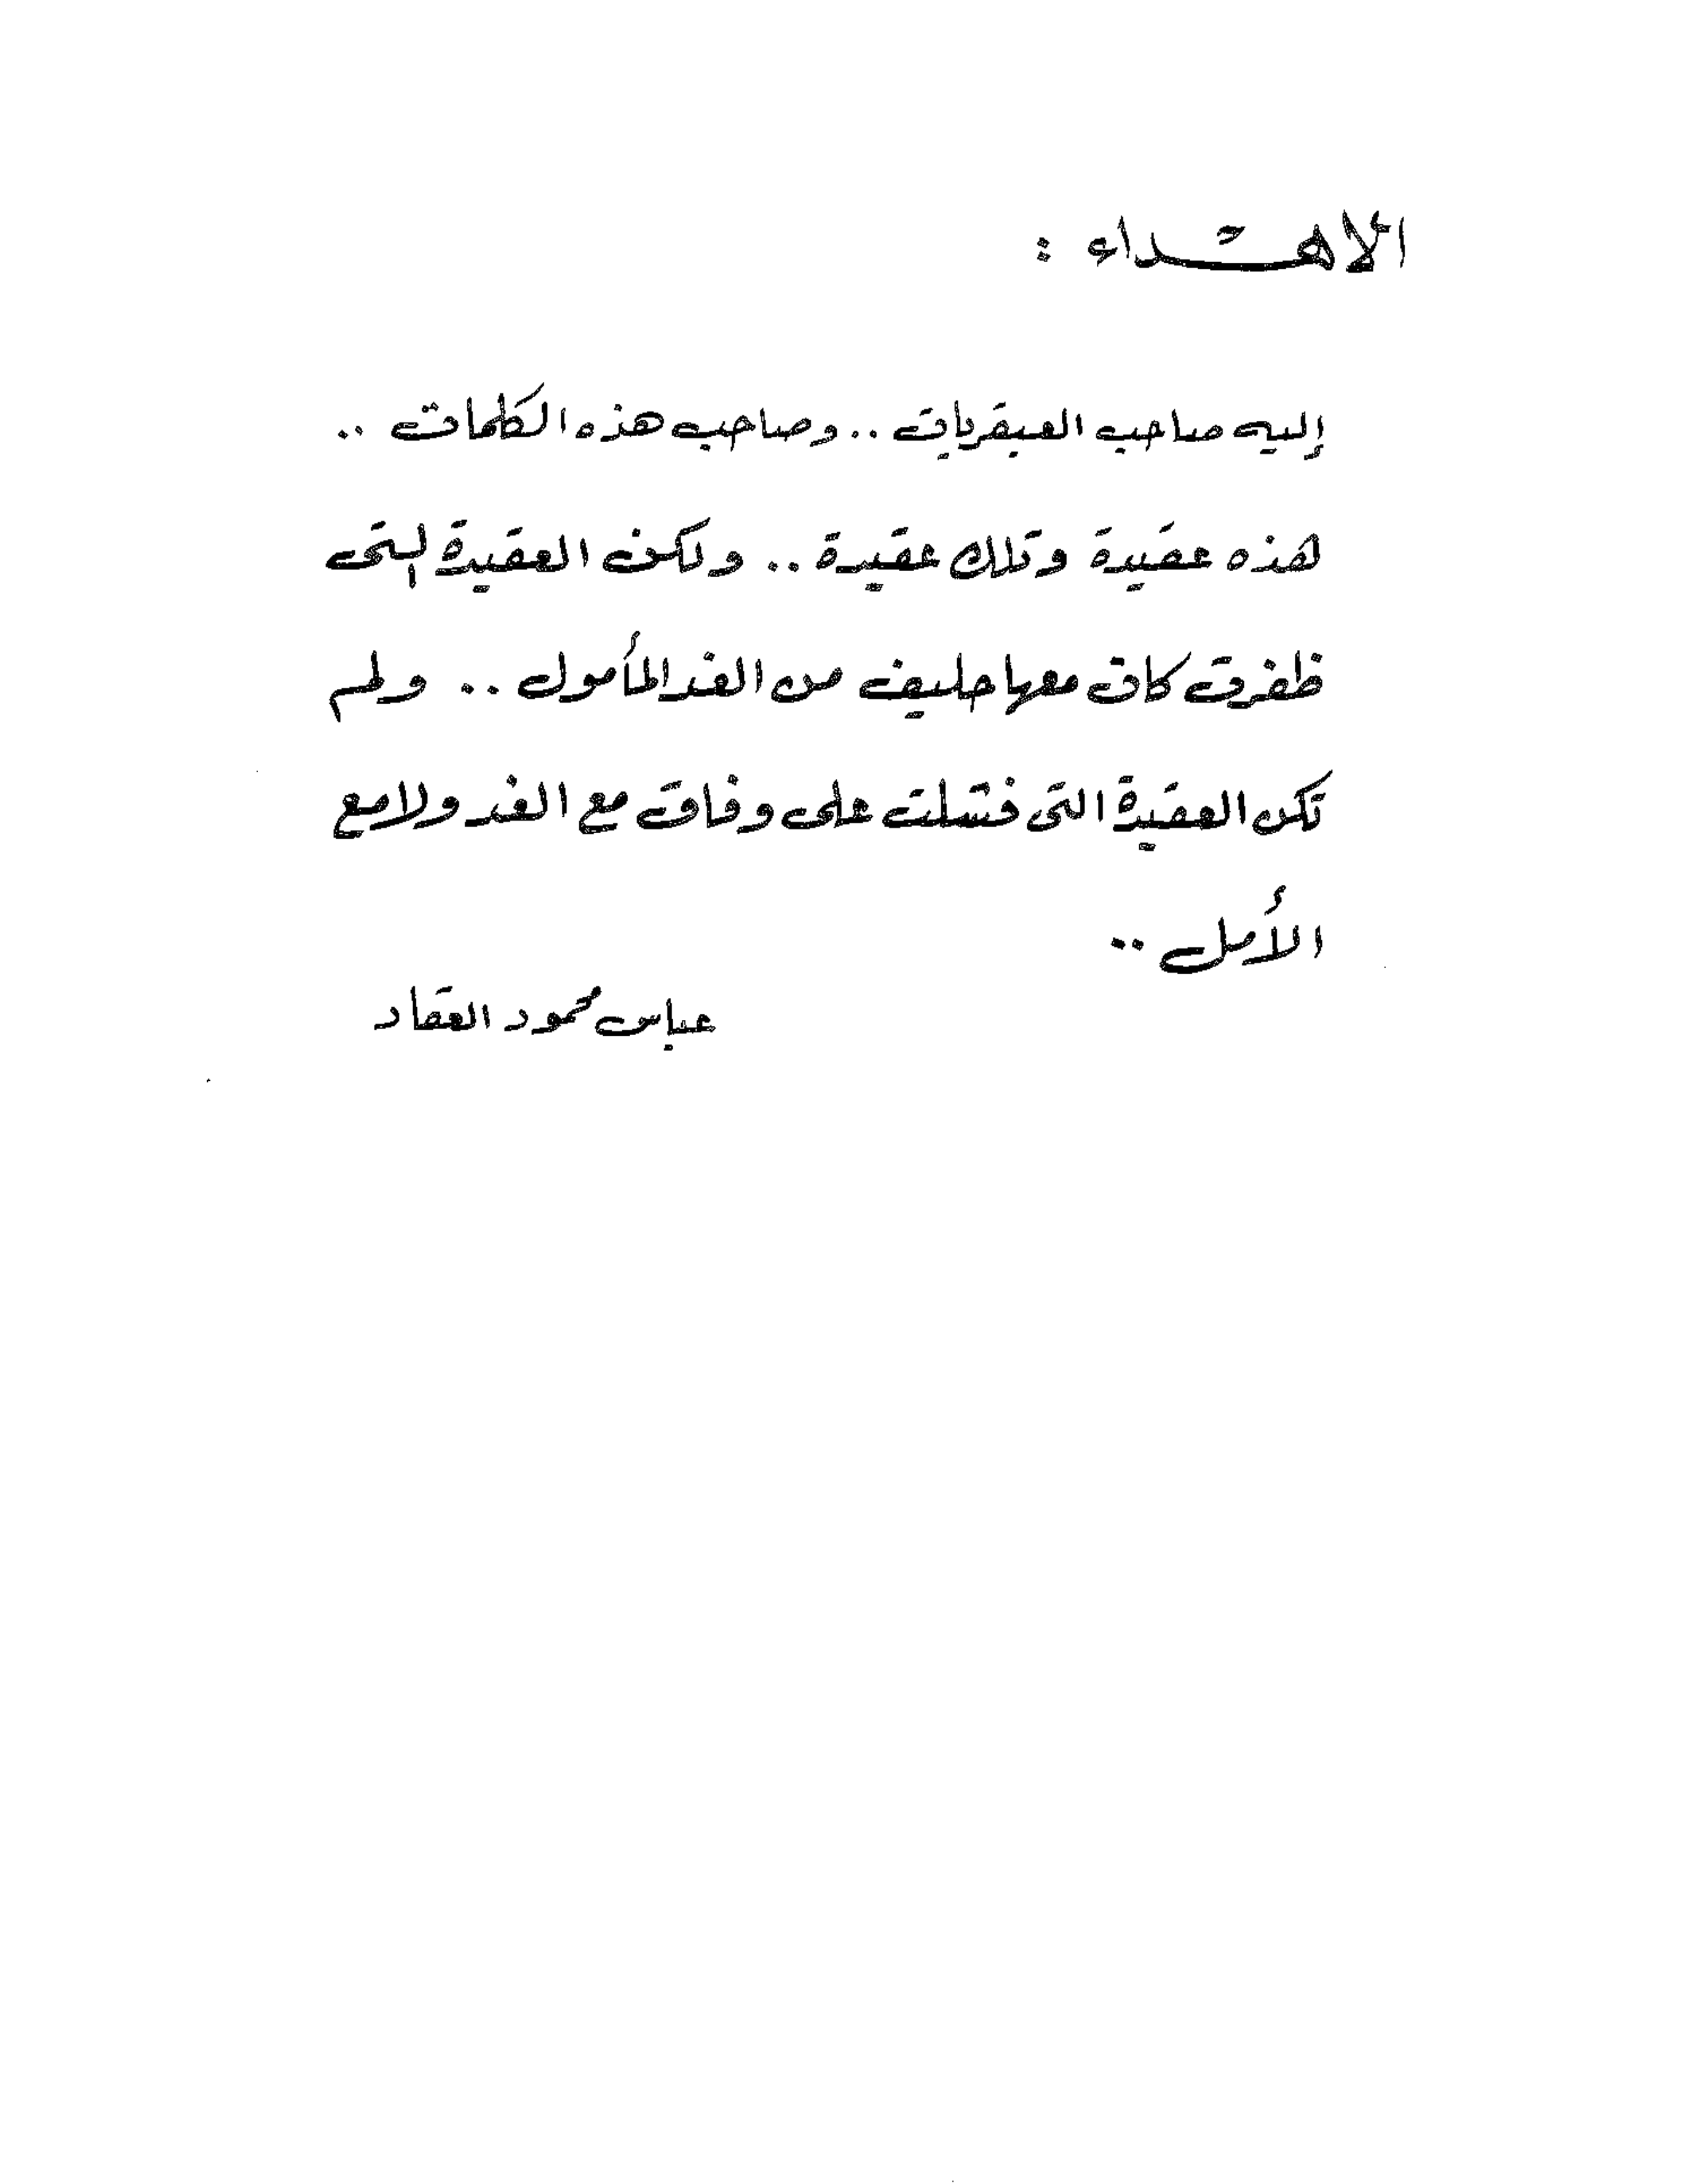 الاهداء :
إليه صاحب العبقريات .. وصاحب هذه الكلمات ..
هذه عقيدة وتلك عقيدة .. ولكن العقيدة التى
ظفرت كان معها حليف من الغد المأمول .. ولم
تكن العقيدة التى فشلت على وفاق مع الغد ولا مع
الأمل ..
عباس محمود العقاد